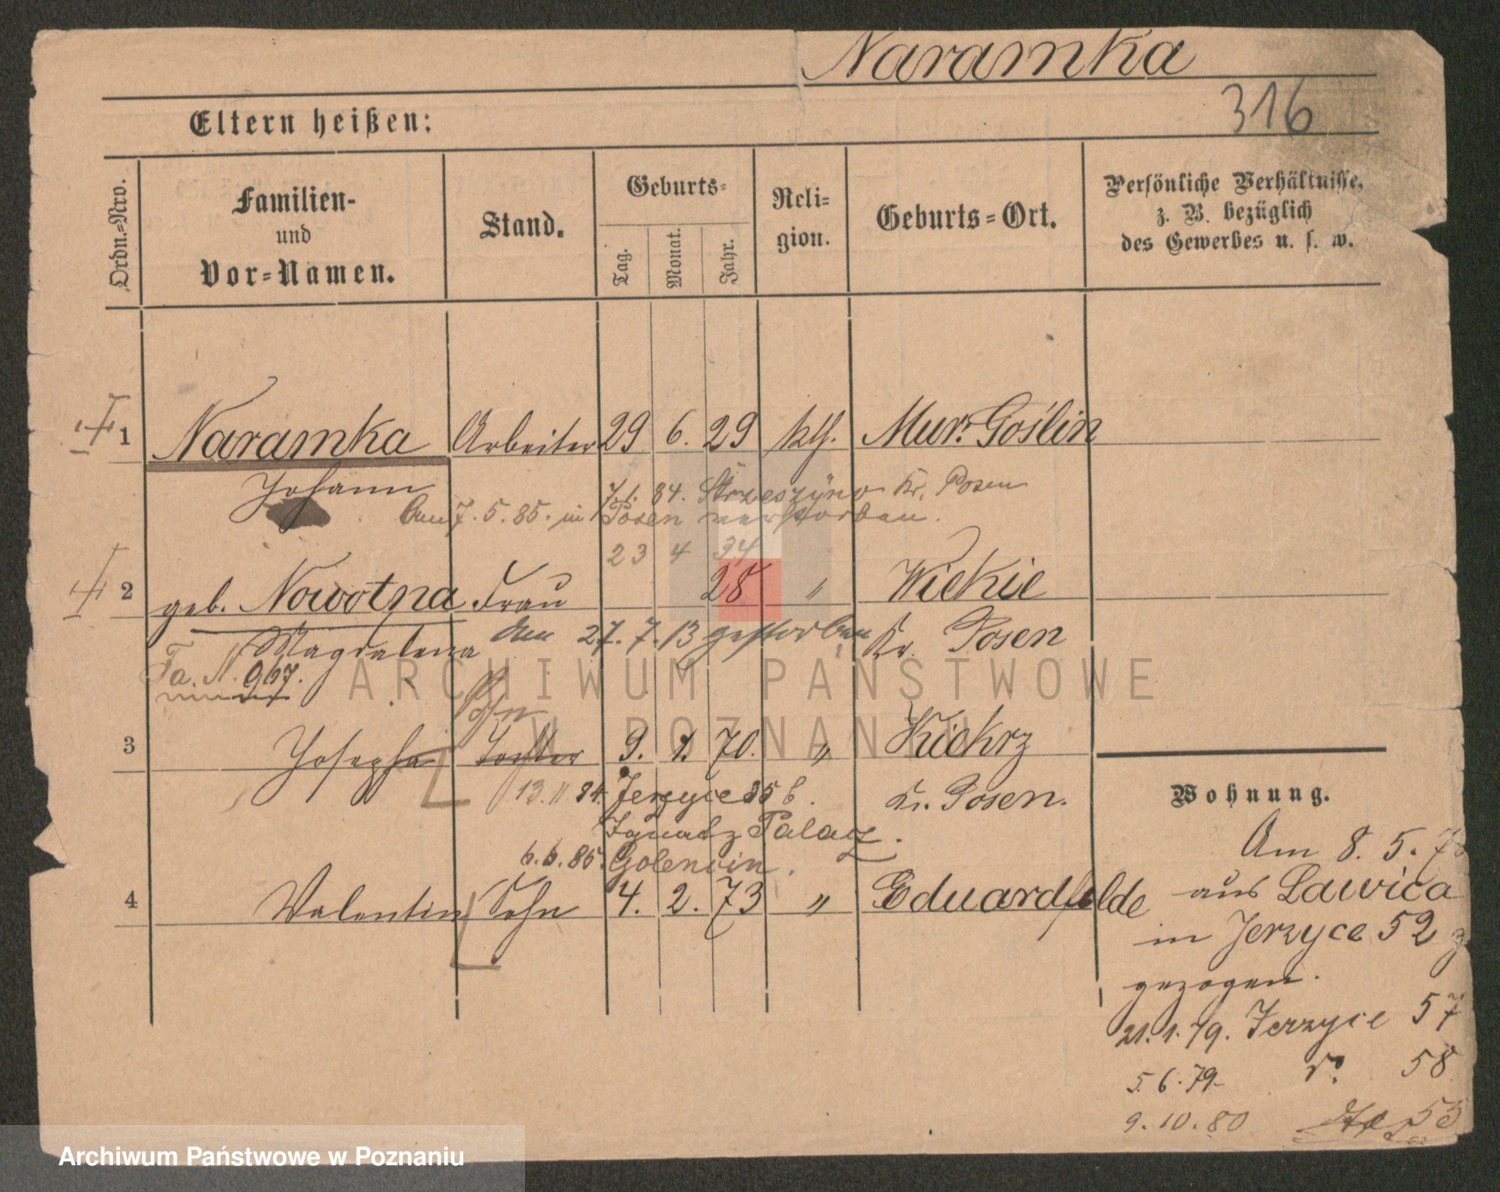 Naramka
316
Eltern heißen:
Ordn.-Nro.
Familien-
und
Vor-Namen.
Stand.
Geburts-
Tag.
Monat.
Jahr.
Reli-
gion.
Geburts-Ort.
Persönliche Verhältnisse,
z. B. bezüglich
des Gewerbes u. s. w.
1 Naramka Arbeiter 29 6. 29 kth. Mur. Goślin
Johann
7.1.84. Strzeszyno Kr. Posen
Am 7.5.85. in Posen verstorben.
23 4 34
2 geb. Nowotna Frau 28 " Wiekie
Magdalena am 27.7.13 gestorben Kr. Posen
Fa. N. 967.
Sohn
3 Josepha Tochter 9. 1. 70. " Kiekrz
13.11.84. Jerzyce 35 b. Kr. Posen.
Ignatz Palacz.
6.6.85. Golencin.
4 Valentin Sohn 4. 2. 73 " Eduardfelde
Wohnung.
Am 8. 5. 7
aus Lawica
in Jerzyce 52
gezogen.
21.1.79. Jerzyce 57
5.6.79. 58
9.10.80 53
ARCHIWUM PAŃSTWOWE
W POZNANIU
Archiwum Państwowe w Poznaniu